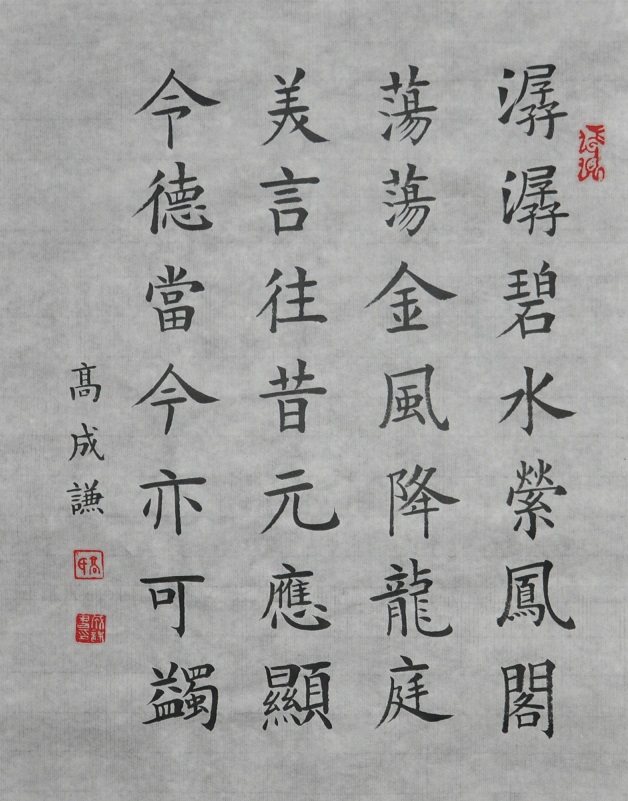 潺潺碧水縈鳳閣
蕩蕩金風降龍庭
美言往昔元應顯
令德當今亦可蠲
高成謙